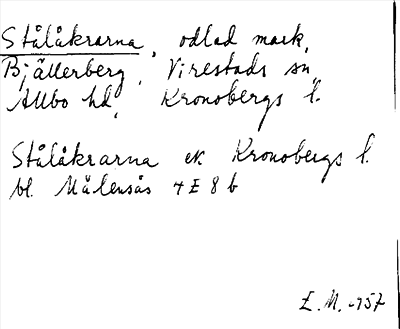 Stålåkrarna, odlad mark,
Bjällerberg, Virestads sn,
Allbo hd, Kronobergs l.
Stålåkrarna ek Kronobergs l.
bl. Målensås 4 E 8 b
E. M. -757